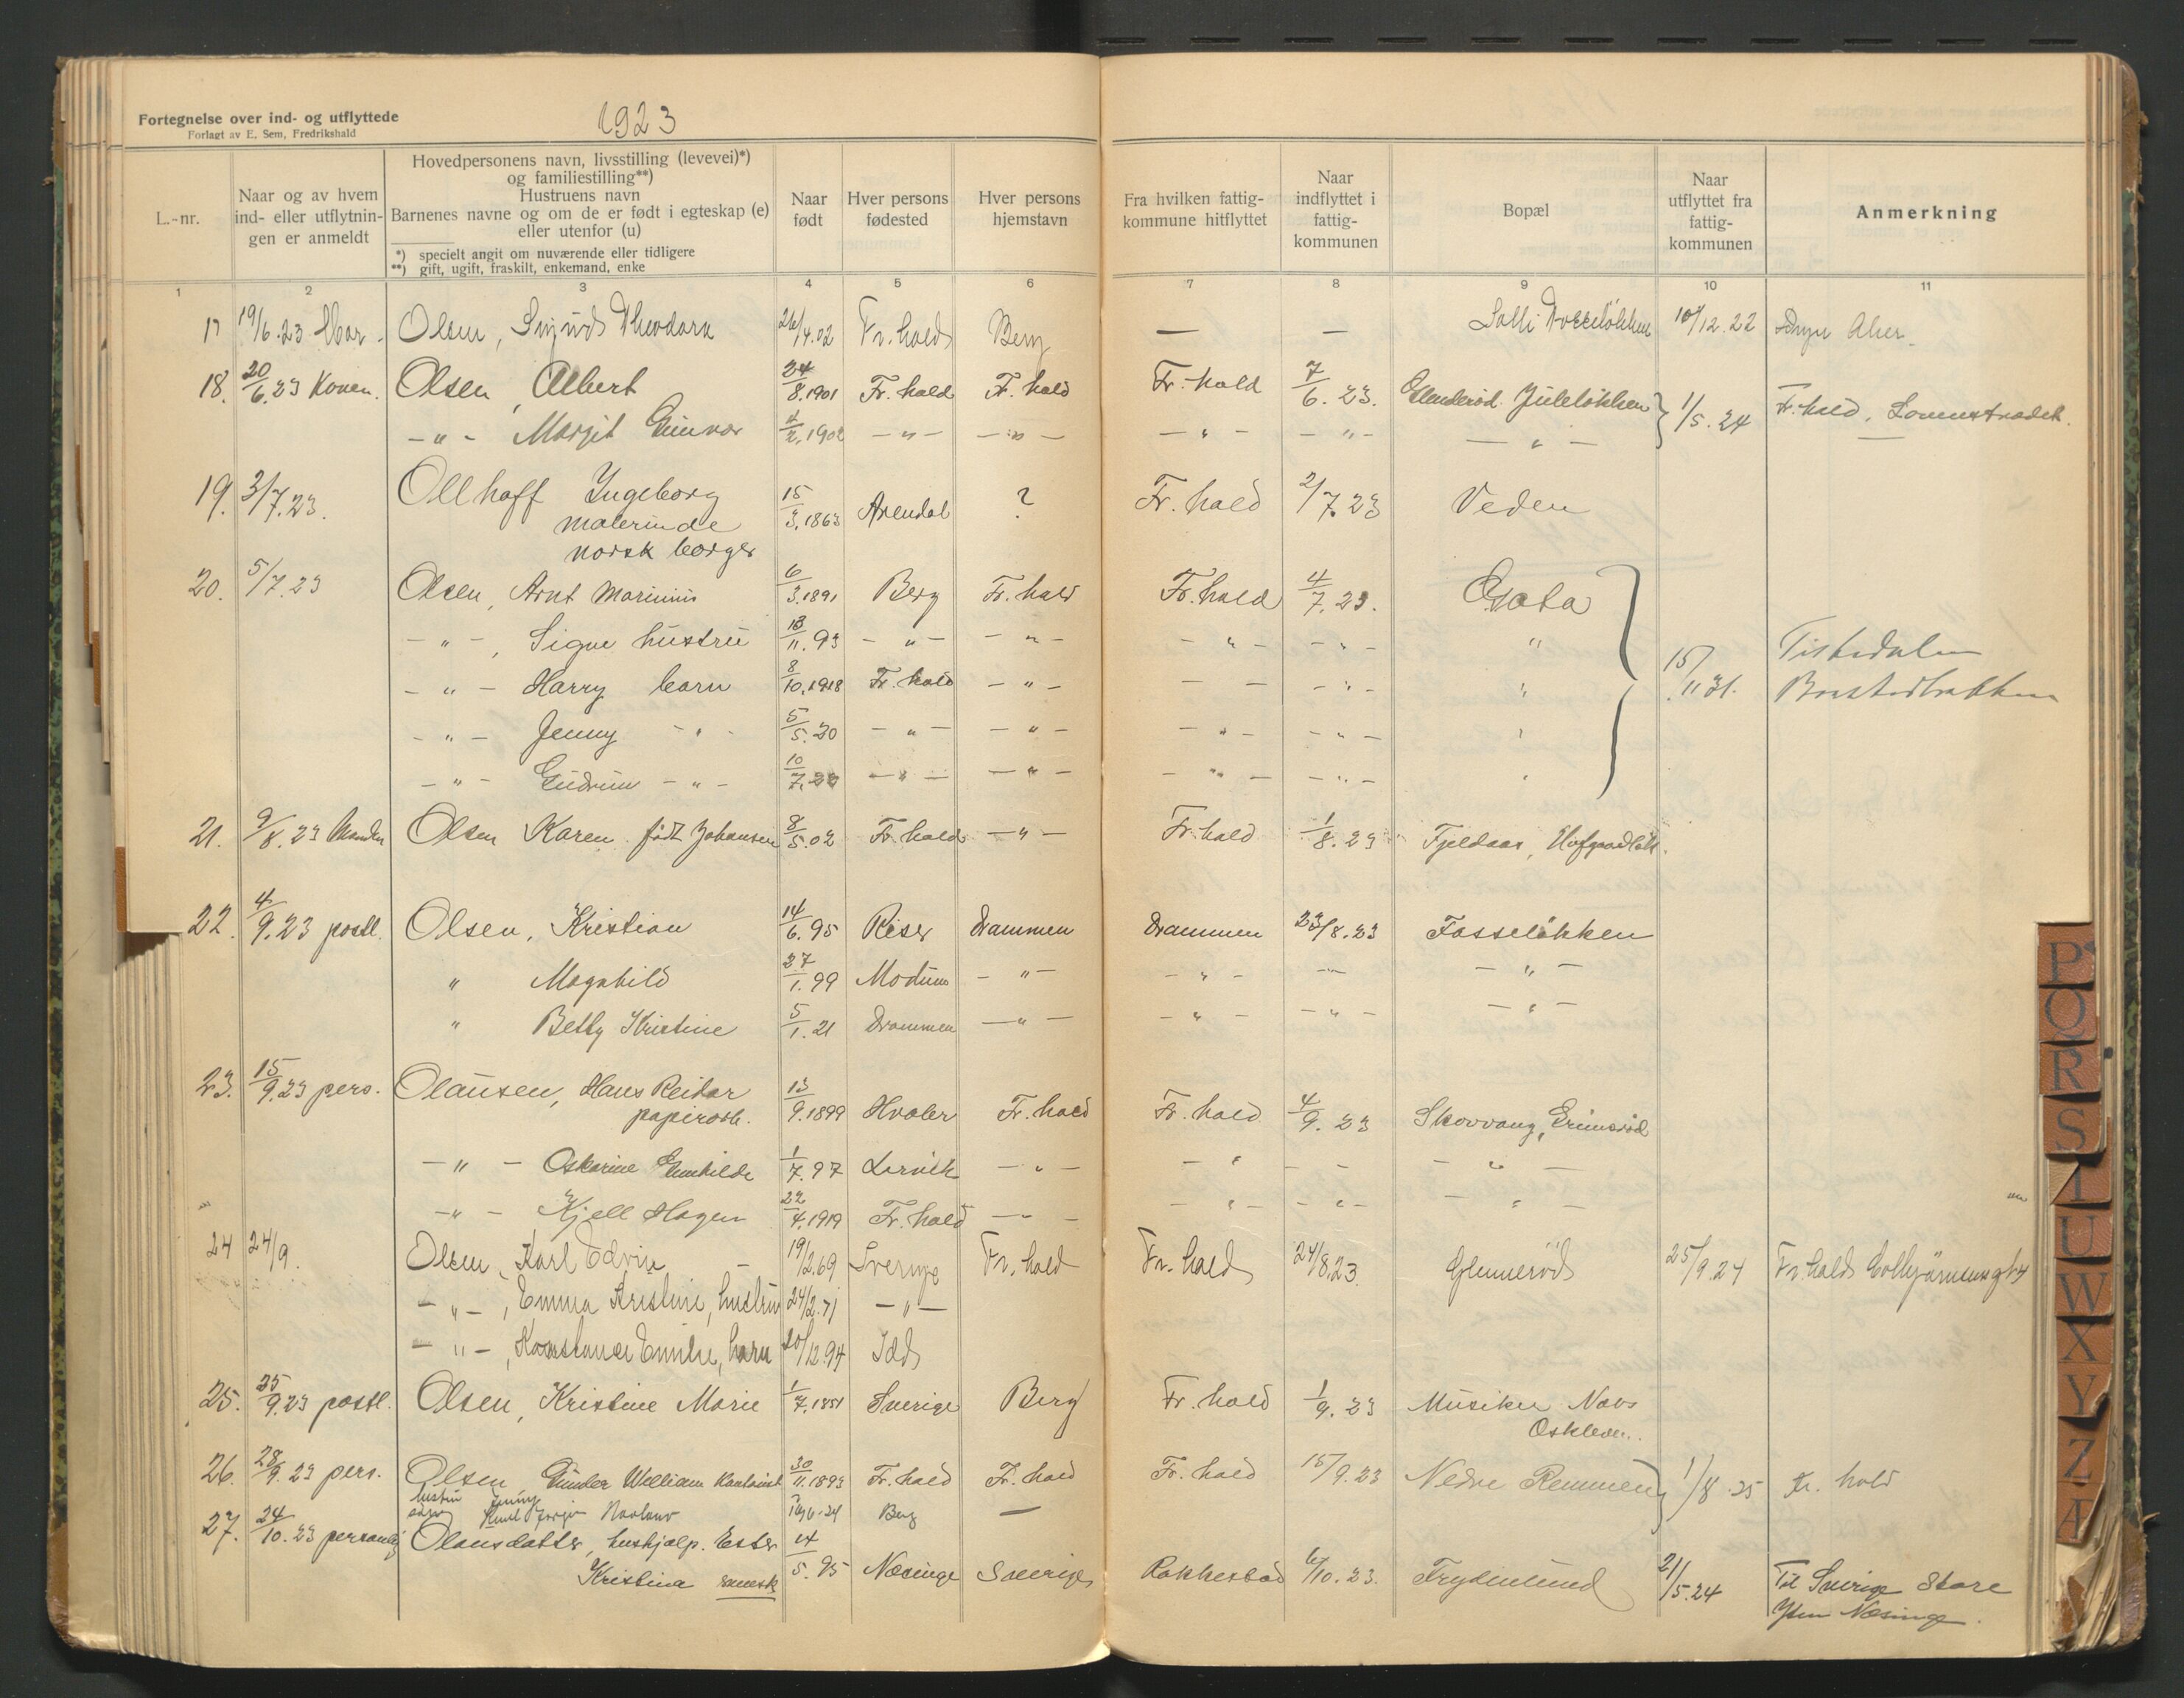 Fortegnelse over ind- og utflyttede
Forlagt av E. Sem, Fredrikshald
1923
L.-nr.
Naar og av hvem ind- eller utflytnin-gen er anmeldt
Hovedpersonens navn, livsstilling (levevei)*)
og familiestilling**)
Hustruens navn
Barnenes navne og om de er født i egteskap (e)
eller utenfor (u)
*) specielt angit om nuværende eller tidligere
**) gift, ugift, fraskilt, enkemand, enke
Naar født
Hver persons fødested
Hver persons hjemstavn
Fra hvilken fattig-kommune hitflyttet
Naar indflyttet i fattig-kommunen
Bopæl
Naar utflyttet fra fattig-kommunen
Anmerkning
1 2 3 4 5 6 7 8 9 10 11
17 19/6.23 Olsen, Theodora 26/4.02 Fr.hald Berg — — Solli 10/12.22 Aker.
18. 20/6.23 Konen. Olsen, Albert 24/8.1901 Fr.hald F.hald Fr.hald 7/6.23. Juleløkken 1/5.24 F.hald,
-"- Margit Gunvor 4/2.1902 -"- -"- -"- -"- -"-
19. 3/7.23. Ollhoff Ingeborg 15/3.1863 Arendal ? Fr.hald 2/7.23 Veden
malerinde
norsk borger
20. 5/7.23 Olsen, Arnt Marinius 6/3.1891 Berg Fr.hald Fr.hald 4/7.23.
-"-, Signe hustru 18/11.93 -"- -"- -"- -"- "
-"- Harry barn 8/10.1918 Fr.hald -"- - - -"- " 15/11 31. Tistedalen
-"- Jenny -"- 5/5.20 -"- -"- -"- -"- "
-"- Gudrun -"- 10/7.22 -"- -"- -"- -"- "
21. 9/8.23 Olsen Karen født Johansen 8/5.02 Fr.hald -"- Fr.hald 1/8.23 Fjeldaas,
22. 4/9.23 postl. Olsen, Kristian 14/6.95 Riser Drammen Drammen 23/8.23 Fosseløkken
" Magnhild 27/1.99 Modum -"- -"- -"- -"-
" Betty Kristine 5/1.21 Drammen -"- -"- -"- -"-
23. 15/9.23 pers. Olausen, Hans Reidar 13/9.1899 Hvaler Fr.hald Fr.hald 4/9.23 Skovvang, Grimsrød
papirarb.
-"- Oskarine Gunhilde 1/7.97 Larvik -"- -"- - - -"-
-"- Kjell Hagen 22/4.1919 Fr.hald - - -"- -"- -"-
24 24/9. Olsen, Karl Edvin 19/2.69 Sverige Fr.hald Fr.hald 24/8.23. Glennerød 25/9.24 Fr.hald
-"-, Emma Kristine, hustru 24/2.71 -"-
-"-, Konstance Emilie, barn 20/12.94 Idd
25. 25/9.23 postl. Olsen, Kristine Marie 1/7.1851 Sverige Berg Fr.hald 1/9.23 Musiker
Oskleven.
26. 28/9.23 pers. Olsen, Gunder William 30/11.1893 Fr.hald Fr.hald Fr.hald 15/9.23 Nedre Remmen 1/8.25 Fr.hald
hustru Jenny
Berg —
27. 24/10.23 personlig Olausdatter, hushjælp. Ester 14/5.95 Næsinge Sverige Rakkestad 6/10.23. Frydenlund 21/5.24 Til Sverige Store
Kristina svensk
Næsinge.
P
Q
R
S
T
U
W
X
Y
Z
Æ